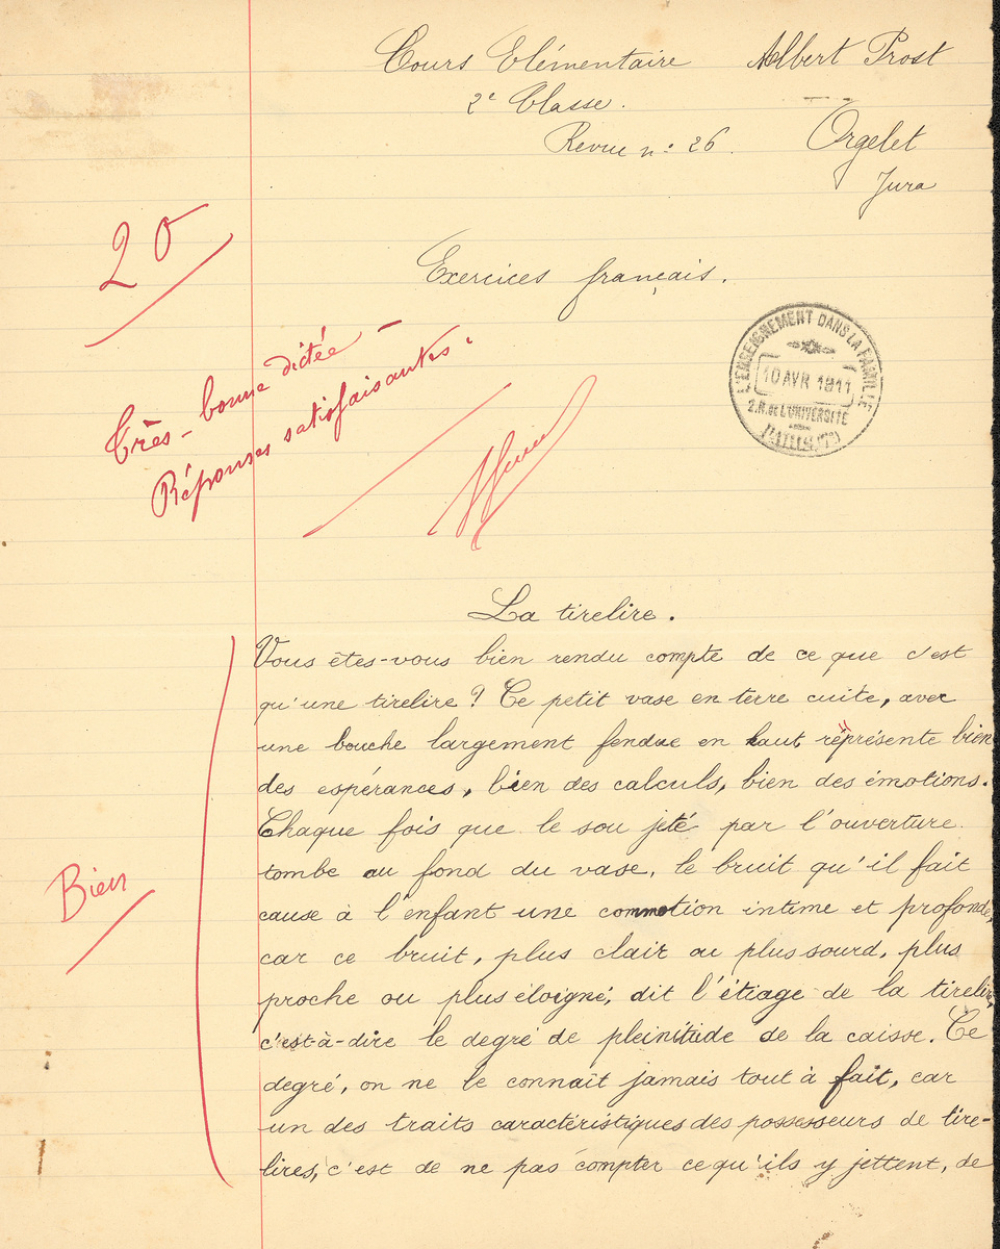 Cours Elémentaire Albert Prost
2e Classe.
Revue n: 26. Orgelet
Jura
20
Exercices français.
L'ENSEIGNEMENT DANS LA FAMILLE
10 AVR 1911
2.R. DE L'UNIVERSITÉ
PARIS (7e)
Très-bonne dictée —
Réponses satisfaisantes.
La tirelire.
Vous êtes-vous bien rendu compte de ce que c'est
qu'une tirelire? Ce petit vase en terre cuite, avec
une bouche largement fendue en haut représente bien
des espérances, bien des calculs, bien des émotions.
Chaque fois que le sou jeté par l'ouverture
tombe au fond du vase, le bruit qu'il fait
Bien
cause à l'enfant une commotion intime et profonde,
car ce bruit, plus clair ou plus sourd, plus
proche ou plus éloigné, dit l'étiage de la tirelire,
c'est-à-dire le degré de pleinitude de la caisse. Ce
degré, on ne le connaît jamais tout à fait, car
un des traits caractéristiques des possesseurs de tire-
lires, c'est de ne pas compter ce qu'ils y jettent, de